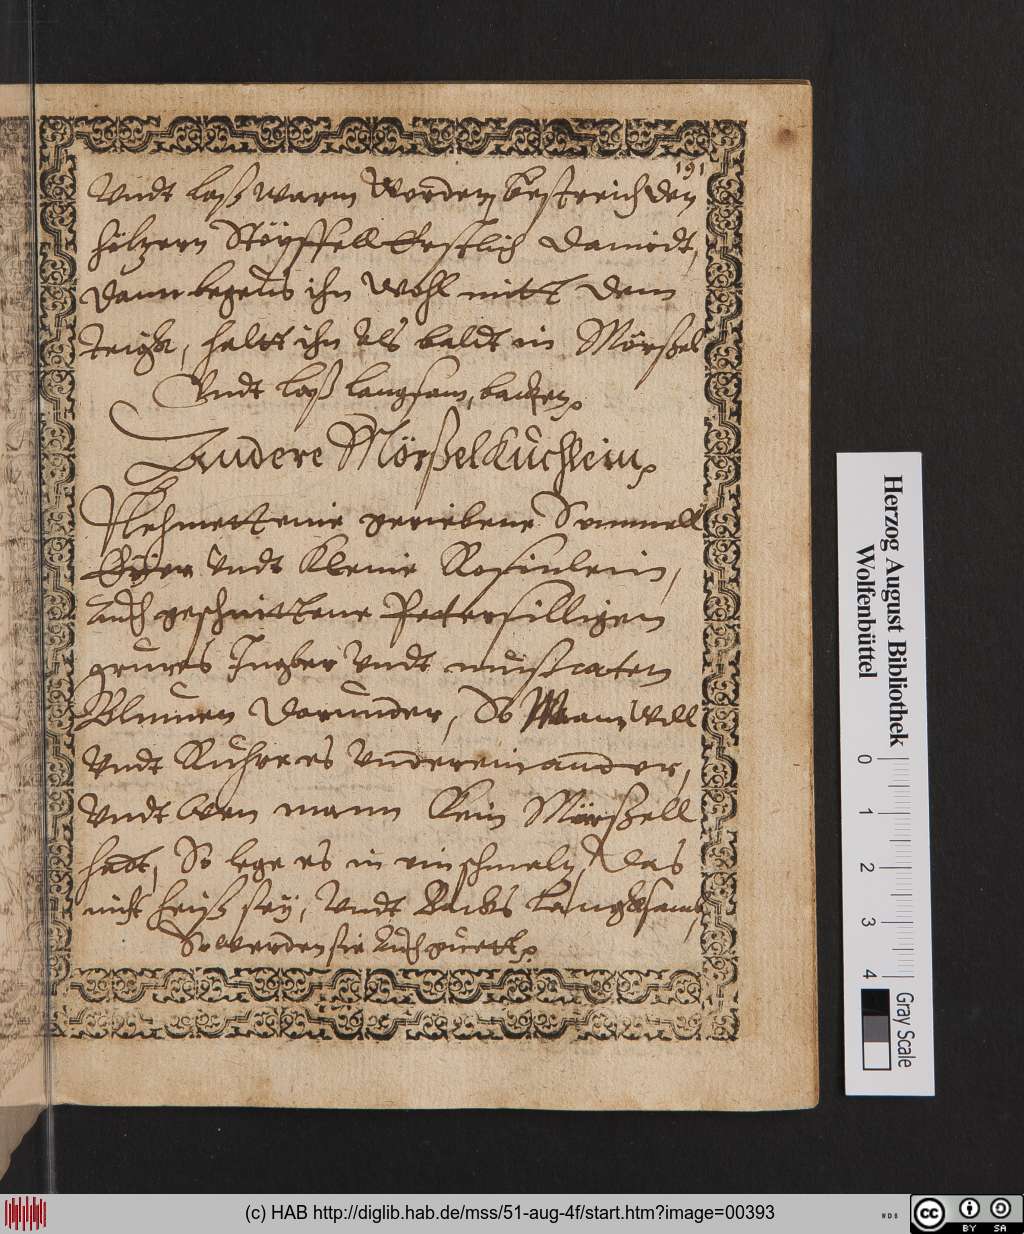 191
Undt laß warm Worden, bestreich den
hiltzern Stöpffell Erstlich damidt,
dann begeus ihn Wohl mitt dem
teigk, haltt ihn als baldt in Mörßel
Undt laß langsam, backen,
Andere Mörßelkuchlein,
Nehmett eine geriebene Semmell
Eyer Undt Kleine Rosinlein,
Auch geschnittene Petersilligen
grunes Ingber Undt mußcaten
Blumen darunder, So Mann Will
Undt Ruhre es Undereinander,
Undt Wen mann Kein Mörßell
hadt, So lege es in ein schmaltz, das
nicht heiß sey, Undt Backs Langksamb,
So werden sie Auch guett,
Herzog August Bibliothek
Wolfenbüttel
0 1 2 3 4
Gray Scale
(c) HAB http://diglib.hab.de/mss/51-aug-4f/start.htm?image=00393
WDB
cc BY SA